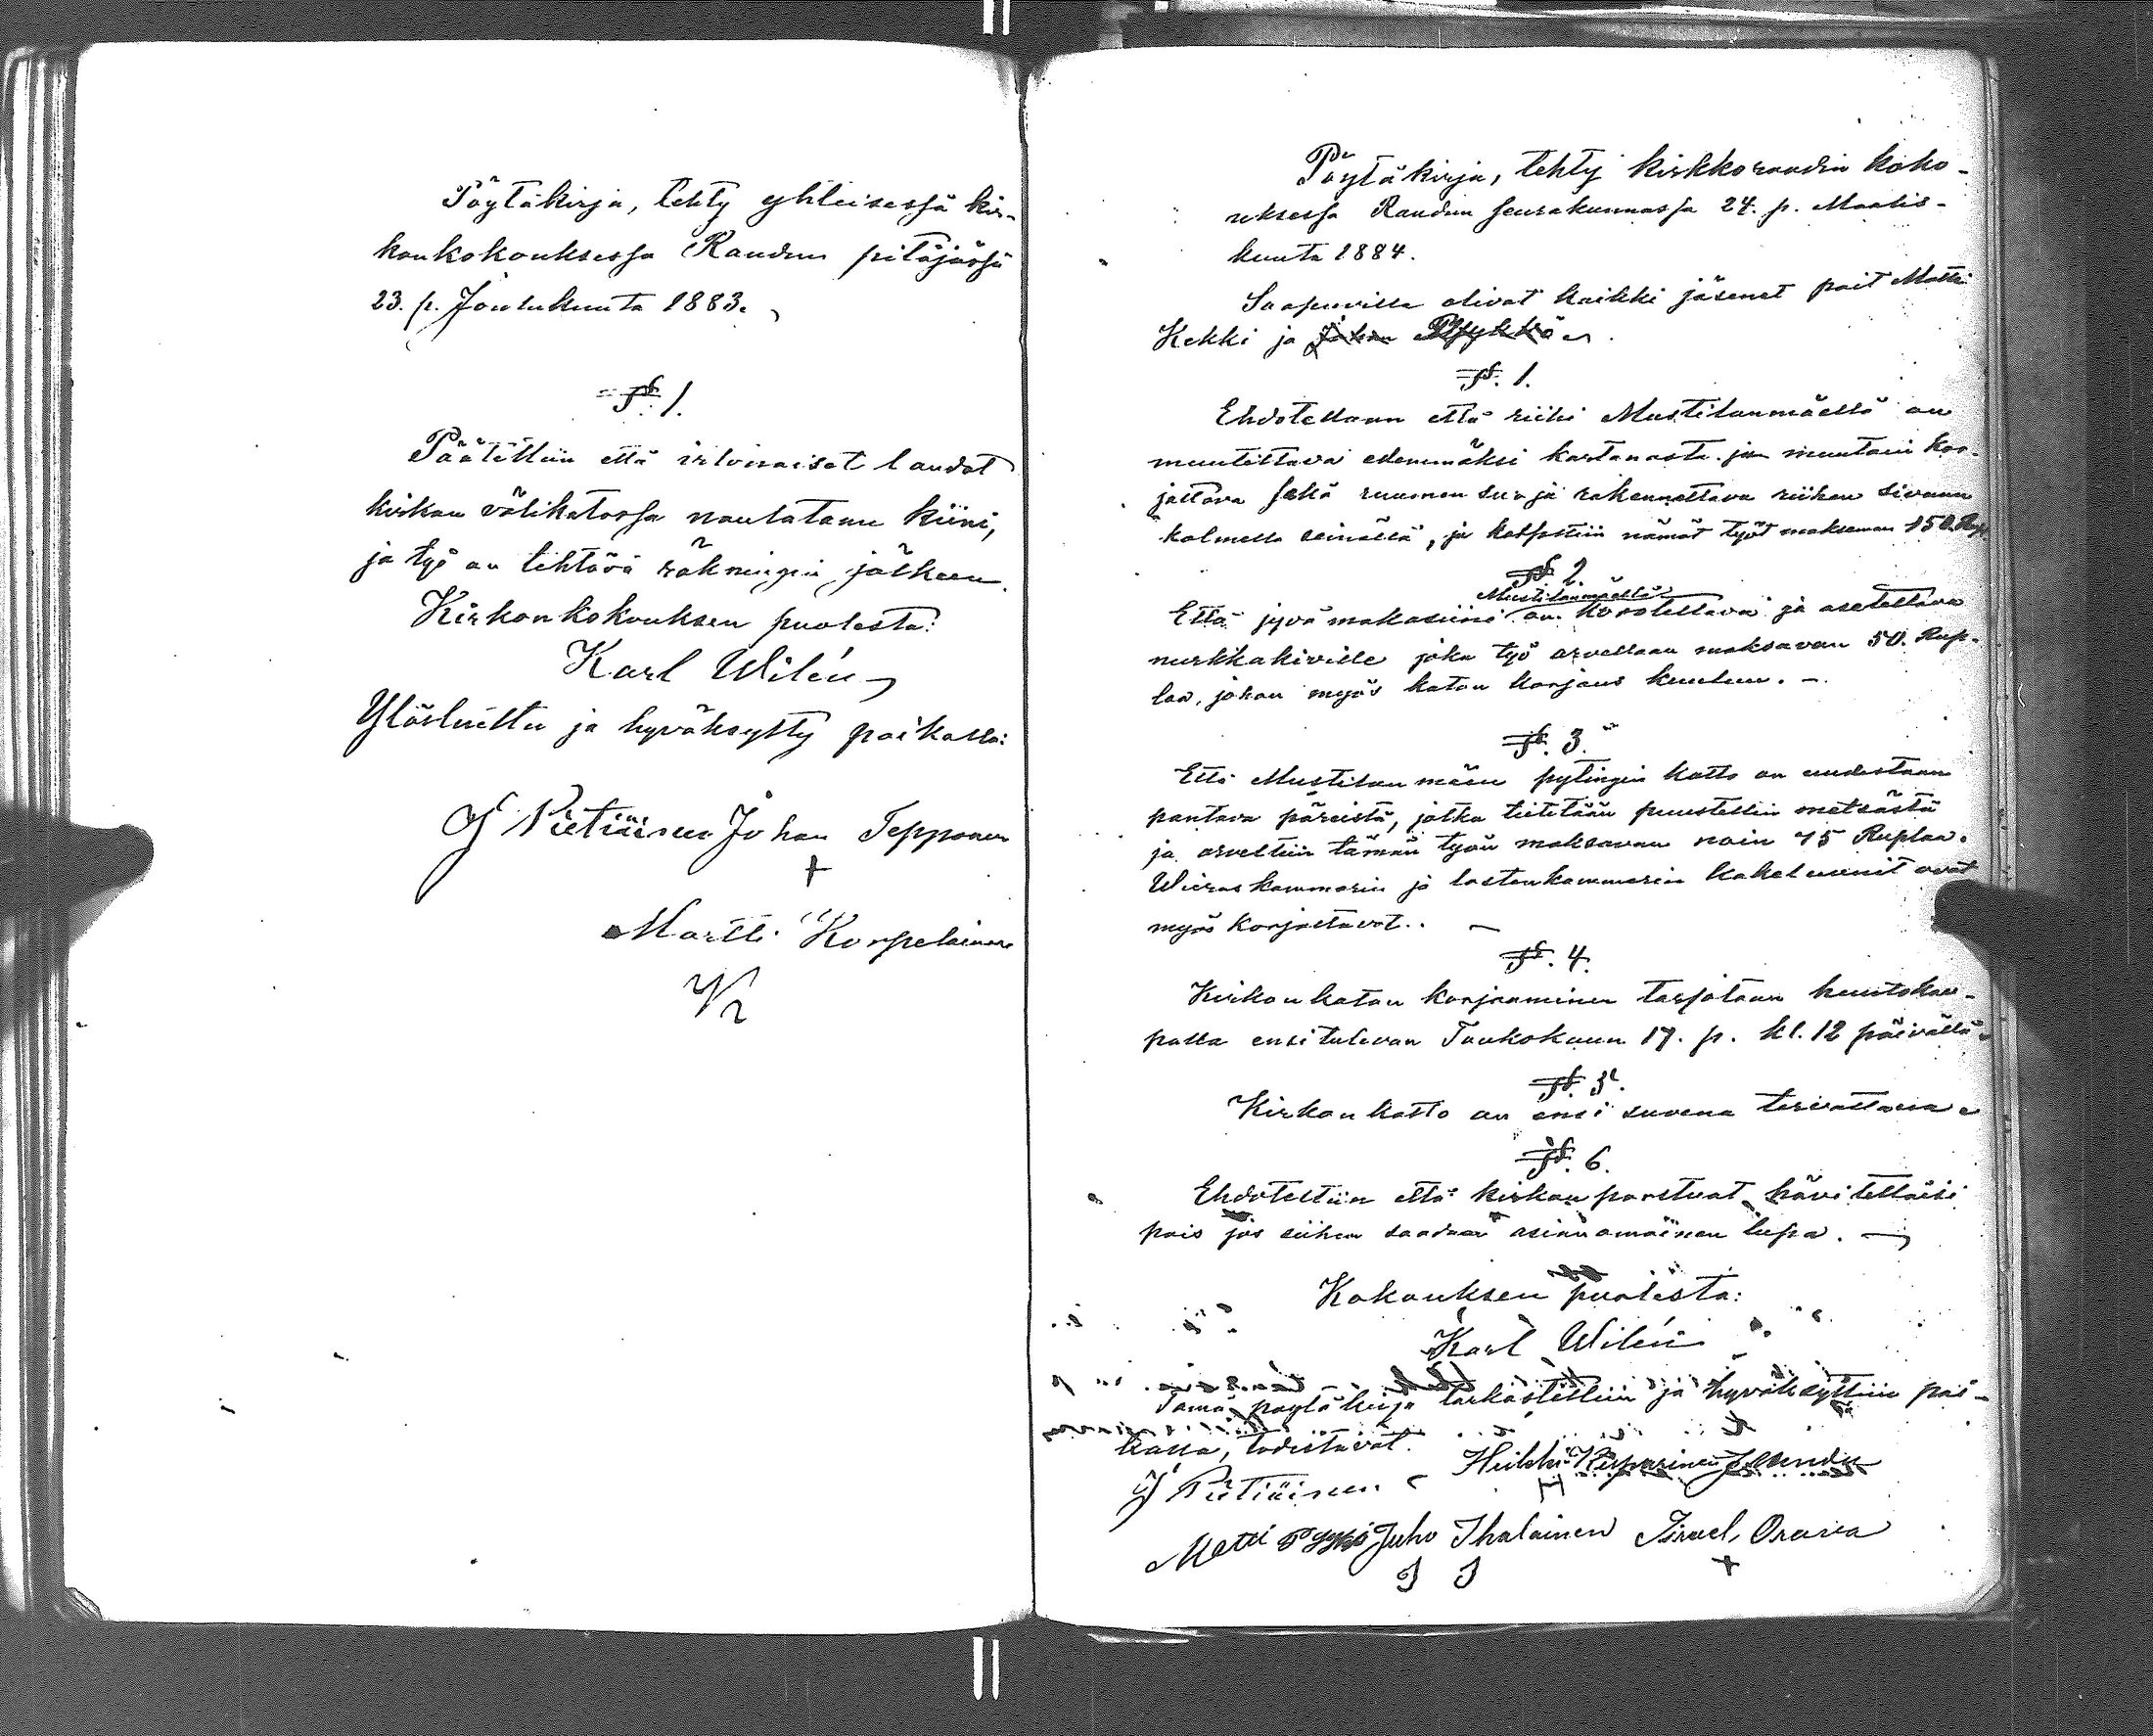 Pöytäkirja, tehty yhteisessä kir-
konkokouksessa Raudun pitäjässä
23. p. Joulukuuta 1883.
§. 1.
Päätettiin että irtonaiset laudat
kirkon välikatossa naulataan kiini,
ja työ on tehtävä räkningin jälkeen.
Kirkonkokouksen puolesta:
Karl Wilén
Ylösluettu ja hyväksytty paikalla:
J Pietiäinen Johan Tepponen
+
Martti Korpelainen
Pöytäkirja, tehty kirkkoraadin koko-
uksessa Raudun seurakunnassa 24. p. Maalis-
kuuta 1884.
Saapuvilla olivat kaikki jäsenet pait Matti
Kekki ja Johan Pyykkö
§. 1.
Ehdotellaan että riihi Mustilanmäellä on
muutettava edemmäksi kartanosta ja muutoin kor-
jattava sekä ruumen suoja rakennettava riihen sivuun
kolmella seinällä, ja katsottiin nämät työt maksavan 150. Rup.
§ 2.
Mustilanmäellä
Että jyvämakasiini on korotettava ja asetettava
nurkkakiville joka työ arvellaan maksavan 50. Rup-
laa, johon myös katon korjaus kuuluu. –
§. 3.
Että Mustilanmäen pytingin katto on uudestaan
pantava päreistä, jotka tietetään puustellin metsästä
ja arveltiin tämän työn maksavan noin 75 Ruplaa.
Wieraskammarin ja lastenkammarin kakeluunit ovat
myös korjattavat. –
§. 4.
Kirkon katon korjaaminen tarjotaan huutokau-
palla ensitulevan Toukokuun 17. p. kl. 12 päivällä.
§. 5.
Kirkon katto on ensi suvena tervattava
§. 6.
Ehdoteltiin että kirkon porstuat hävitettäisi
pois jos siihen saadaan asianomainen lupa. –
Kokouksen puolesta:
Karl Wilén
Tämä pöytäkirja tarkastettiin ja hyväksyttiin pai-
kalla, todistavat.
J Pietiäinen Heikki
H
Matti Pyykö Juho Ihalainen Israel Orava
J I +